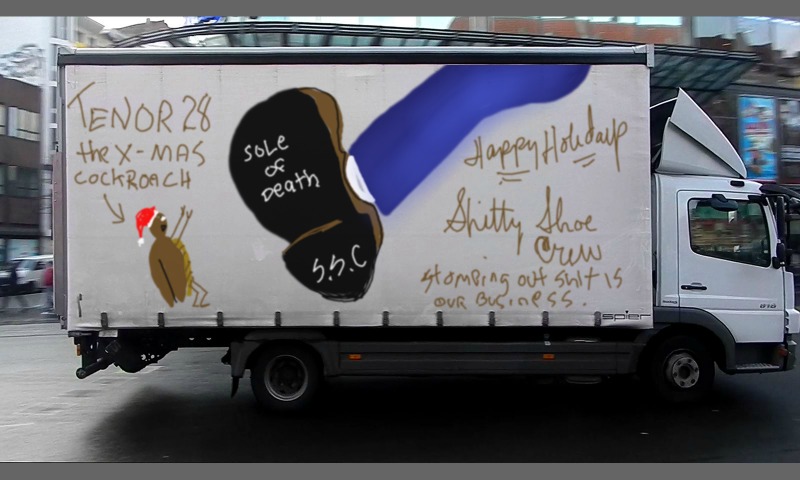 TENOR 28
the X-MAS
COCKROACH
SOLE
OF
DEATH
S.S.C
Happy Holidays
Shitty Shoe
Crew
Stomping out shit is
our Business.
spier